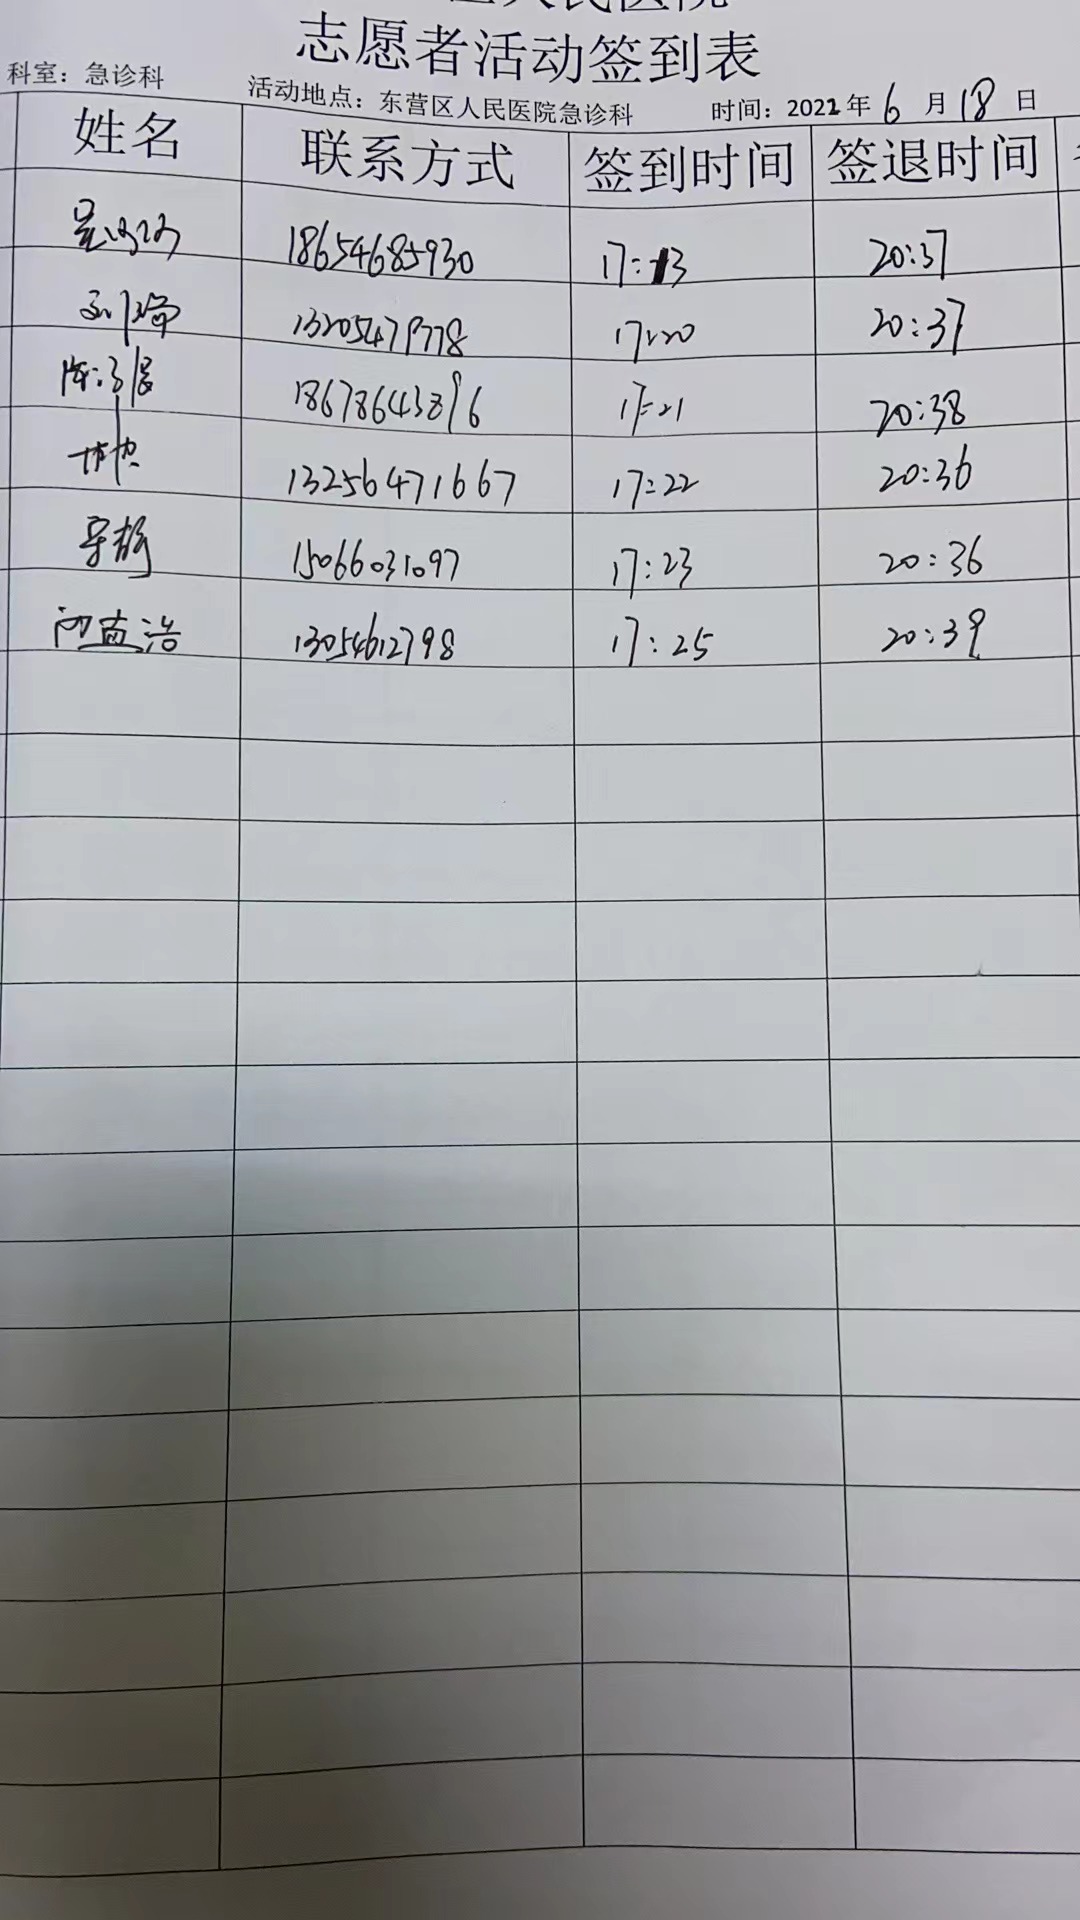 区人民医院
志愿者活动签到表
科室：急诊科 活动地点：东营区人民医院急诊科 时间：2022年6月18日
姓名 联系方式 签到时间 签退时间
18654685930 17:13 20:37
13205479778 17:20 20:37
18678643896 17:21 20:38
13256471667 17:22 20:36
15066031097 17:23 20:36
浩 13054612798 17:25 20:39